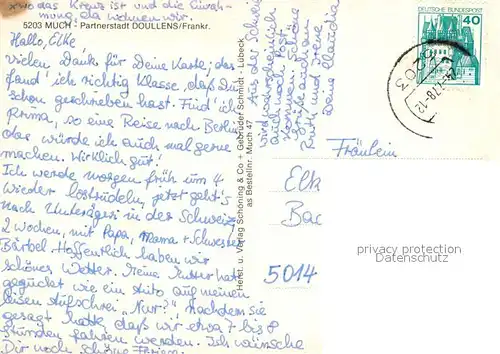 x wo das Kreuz ist und die Einrah-
mung, da wohnen wir.
5203 MUCH - Partnerstadt DOULLENS/Frankr.
Hallo, Elke!
Vielen Dank für Deine Karte; das
fand ich richtig Klasse, daß Du
schon geschrieben hast. Find' ich
Prima, so eine Reise nach Berlin
das würde ich auch mal gerne
machen. Wirklich gut!
Ich werde morgen früh um 4
wieder losrudeln, jetzt geht's
nach Unterägeri in der Schweiz
2 Wochen, mit Papa, Mama + Schwester
Bärbel. Hoffentlich haben wir
schönes Wetter. Meine Mutter hat
geguckt wie ein Auto auf meinen
leisen Aufschrei "Nur?" Nachdem sie
gesagt hatte, daß wir etwa 7 bis 8
Stunden fahren werden. Ich wünsche
Dir noch schöne Ferien.
Aus der Schweiz
wird wahrscheinlich
kommen. Schöne
Grüße auch an
Ruth und Irene
Deine Claudia
Herst. u. Verlag Schöning & Co + Gebrüder Schmidt - Lübeck
as Bestellnr. Much 47
DEUTSCHE BUNDESPOST
40
5203
-7.78-12
Fräulein
Elk
Bac
5014
privacy protection
AnsichtskartenHandel.de